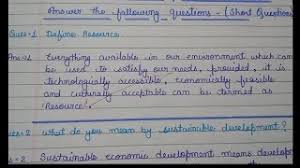 Answer the following questions - (Short Questions
Ques-1 Define Resource.
Ans Everything available in our environment which can
be used to satisfy our needs, provided, it is
technologically accessible, economically feasible
and culturally acceptable can be termed as
'Resource'.
Ques-2 What do you mean by sustainable development?
Sustainable economic development means develop